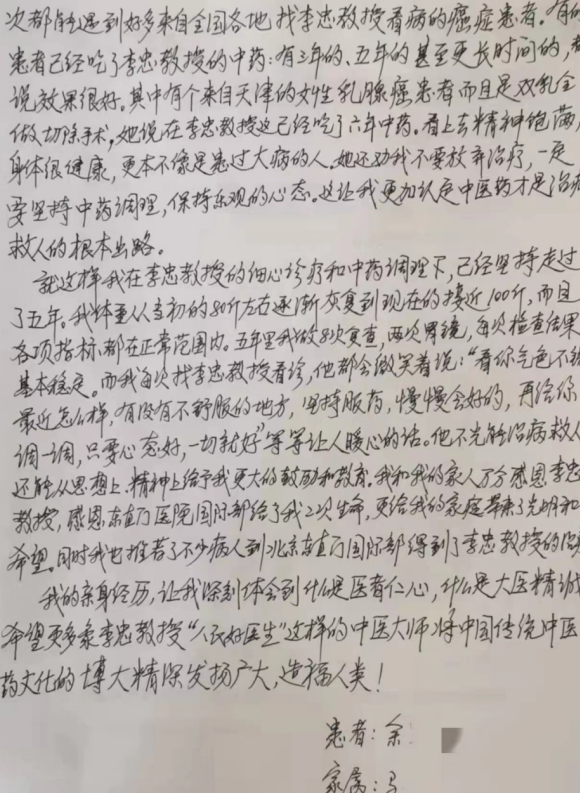 次都能遇到好多来自全国各地找李忠教授看病的癌症患者。有的
患者已经吃了李忠教授的中药:有三年的、五年的甚至更长时间的,都
说效果很好。其中有个来自天津的女性乳腺癌患者而且是双乳全
做切除手术,她说在李忠教授这已经吃了六年中药。看上去精神饱满,
身体很健康,更本不像是患过大病的人。她还劝我不要放弃治疗,一定
要坚持中药调理,保持乐观的心态。这让我更加认定中医药才是治病
救人的根本出路。
就这样我在李忠教授的细心诊疗和中药调理下,已经坚持走过
了五年。我体重从当初的80斤左右逐渐恢复到现在的接近100斤,而且
各项指标都在正常范围内。五年里我做8次复查,两次胃镜,每次检查结果
基本稳定。而我每次找李忠教授看诊,他都会微笑着说:“看你气色不错
最近怎么样,有没有不舒服的地方,坚持服药,慢慢会好的,再给你
调一调,只要心态好,一切就好”等等让人暖心的话。他不光能治病救人
还能从思想上、精神上给予我更大的鼓励和教育。我和我的家人万分感恩李忠
教授,感恩东直门医院国际部给了我二次生命,更给我的家庭带来了光明和
希望。同时我也推荐了不少病人到北京东直门国际部得到了李忠教授的治
我的亲身经历,让我深刻体会到什么是医者仁心,什么是大医精诚
希望更多象李忠教授“人民好医生”这样的中医大师将中国传统中医
药文化的博大精深发扬广大,造福人类!
患者:余
家属: